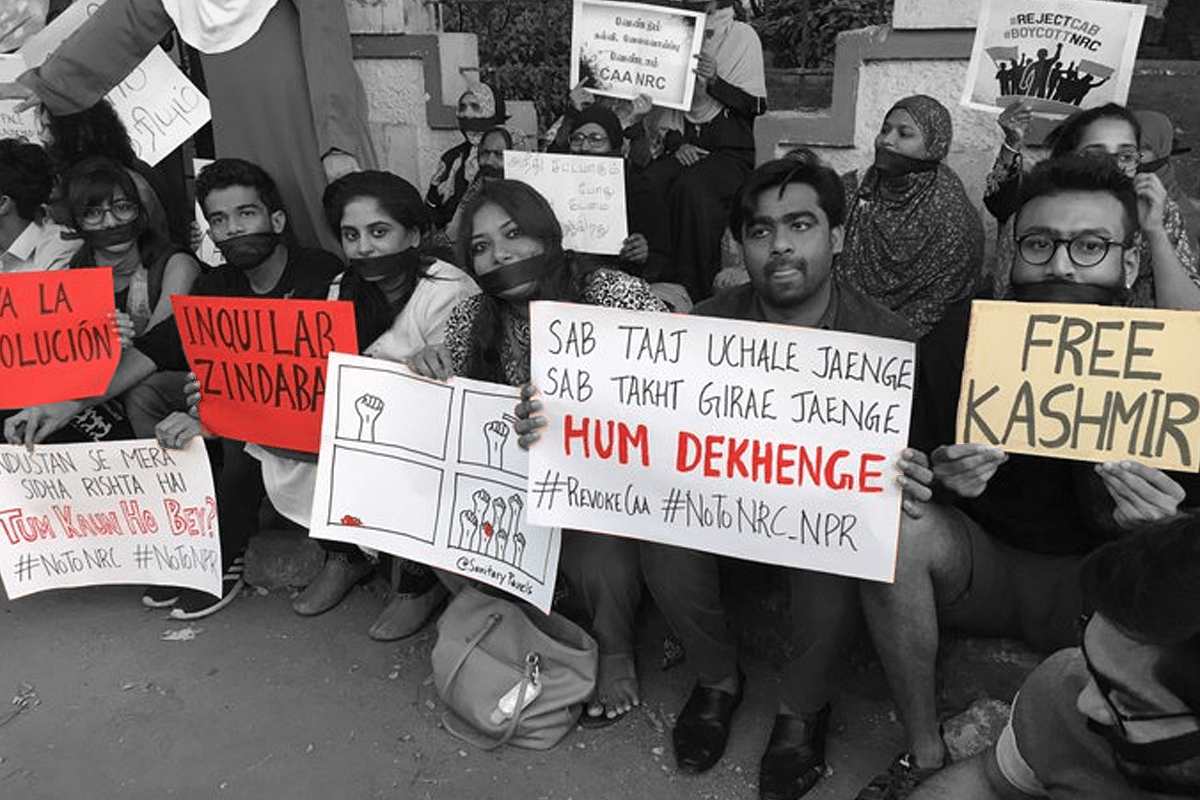 வேண்டும்
கல்வி வேலைவாய்ப்பு
வேண்டாம்
CAA NRC
#REJECTCAB
#BOYCOTTNRC
VA LA
OLUCIÓN
INQUILAB
ZINDABA
SAB TAAJ UCHALE JAENGE
SAB TAKHT GIRAE JAENGE
HUM DEKHENGE
#REVOKECAA #NOTONRC_NPR
FREE
KASHMIR
NDUSTAN SE MERA
SIDHA RISHTA HAI
TUM KAUN HO BEY?
#NOTONRC #NOTONPR
@SanitaryPanels